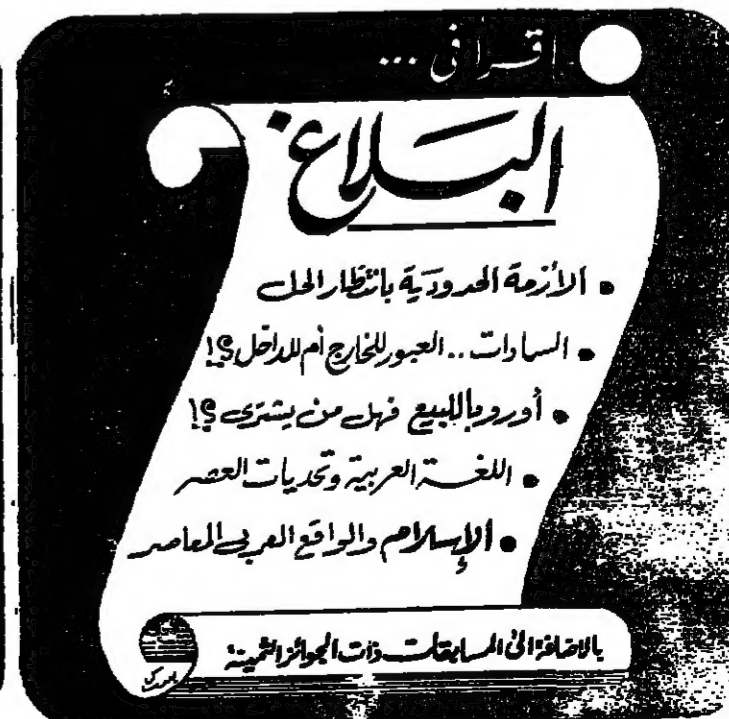 اقرأ في ...
البلاغ
• الأزمة الحدودية بانتظار الحل
• السادات .. العبور للخارج أم للداخل ؟!
• أوروبا للبيع فهل من يشتري ؟!
• اللغة العربية وتحديات العصر
• الإسلام والواقع العربي المعاصر
بالاضافة الى المسابقات ذات الجوائز الثمينة